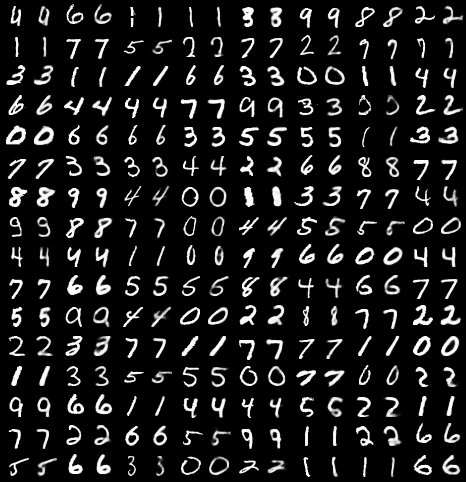 4 4 6 6 1 1 1 1 3 3 9 9 8 8 2 2
1 1 7 7 5 5 2 2 7 7 2 2 9 9 7 7
3 3 1 1 1 1 6 6 3 3 0 0 1 1 4 4
6 6 4 4 4 4 7 7 9 9 3 3 0 0 2 2
0 0 6 6 6 6 3 3 5 5 5 5 1 1 3 3
7 7 3 3 3 3 4 4 2 2 6 6 8 8 7 7
8 8 9 9 4 4 0 0 1 1 3 3 7 7 4 4
9 9 8 8 7 7 0 0 4 4 5 5 5 5 0 0
4 4 4 4 1 1 0 0 9 9 6 6 0 0 4 4
7 7 6 6 5 5 5 5 8 8 4 4 6 6 7 7
5 5 9 9 4 4 0 0 2 2 8 8 7 7 2 2
2 2 3 3 7 7 1 1 7 7 7 7 1 1 0 0
1 1 3 3 5 5 5 5 0 0 7 7 0 0 2 2
9 9 6 6 1 1 4 4 4 4 5 6 2 2 1 1
7 7 2 2 6 6 5 5 9 9 1 1 2 2 6 6
5 5 6 6 3 3 0 0 2 2 1 1 1 1 6 6